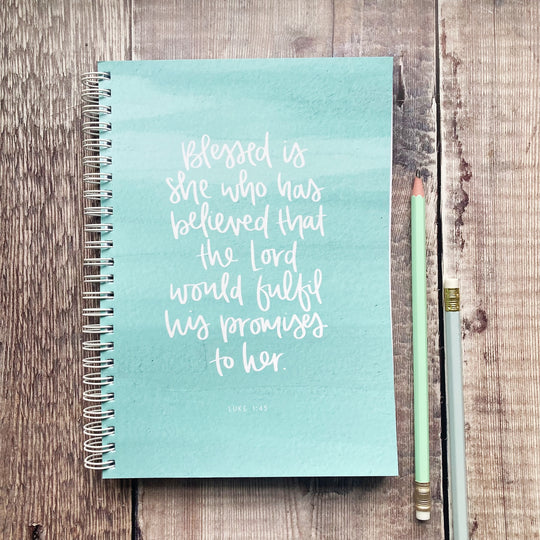 Blessed is
she who has
believed that
the Lord
would fulfil
his promises
to her.
LUKE 1:45